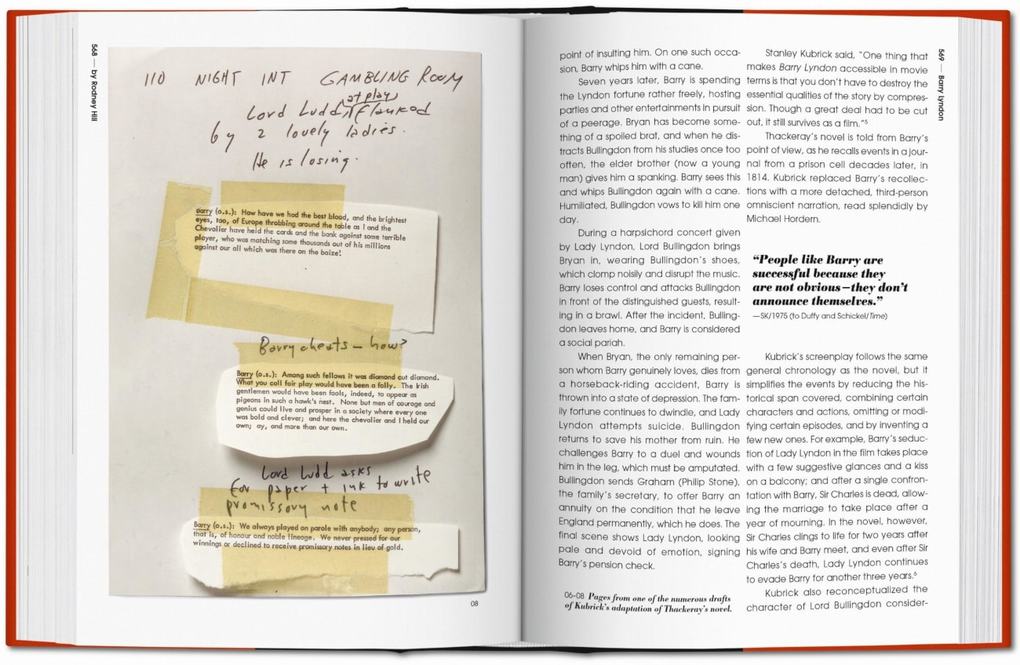 568 — by Rodney Hill
110 NIGHT INT GAMBLING ROOM
at play
Lord Ludd flanked
by 2 lovely ladies.
He is losing.
Barry (o.s.): How have we had the best blood, and the brightest
eyes, too, of Europe throbbing around the table as I and the
Chevalier have held the cards and the bank against some terrible
player, who was matching some thousands out of his millions
against our all which was there on the baize!
Barry cheats — how?
Barry (o.s.): Among such fellows it was diamond cut diamond.
What you call fair play would have been a folly. The Irish
gentlemen would have been fools, indeed, to appear as
pigeons in such a hawk's nest. None but men of courage and
genius could live and prosper in a society where every one
was bold and clever; and here the chevalier and I held our
own; ay, and more than our own.
Lord Ludd asks
for paper + ink to write
promissory note
Barry (o.s.): We always played on parole with anybody; any person,
that is, of honour and noble lineage. We never pressed for our
winnings or declined to receive promissory notes in lieu of gold.
08
point of insulting him. On one such occa-
sion, Barry whips him with a cane.
Seven years later, Barry is spending
the Lyndon fortune rather freely, hosting
parties and other entertainments in pursuit
of a peerage. Bryan has become some-
thing of a spoiled brat, and when he dis-
tracts Bullingdon from his studies once too
often, the elder brother (now a young
man) gives him a spanking. Barry sees this
and whips Bullingdon again with a cane.
Humiliated, Bullingdon vows to kill him one
day.
During a harpsichord concert given
by Lady Lyndon, Lord Bullingdon brings
Bryan in, wearing Bullingdon's shoes,
which clomp noisily and disrupt the music.
Barry loses control and attacks Bullingdon
in front of the distinguished guests, result-
ing in a brawl. After the incident, Bulling-
don leaves home, and Barry is considered
a social pariah.
When Bryan, the only remaining per-
son whom Barry genuinely loves, dies from
a horseback-riding accident, Barry is
thrown into a state of depression. The fam-
ily fortune continues to dwindle, and Lady
Lyndon attempts suicide. Bullingdon
returns to save his mother from ruin. He
challenges Barry to a duel and wounds
him in the leg, which must be amputated.
Bullingdon sends Graham (Philip Stone),
the family's secretary, to offer Barry an
annuity on the condition that he leave
England permanently, which he does. The
final scene shows Lady Lyndon, looking
pale and devoid of emotion, signing
Barry's pension check.
06-08 Pages from one of the numerous drafts
of Kubrick's adaptation of Thackeray's novel.
Stanley Kubrick said, "One thing that
makes Barry Lyndon accessible in movie
terms is that you don't have to destroy the
essential qualities of the story by compres-
sion. Though a great deal had to be cut
out, it still survives as a film."⁵
Thackeray's novel is told from Barry's
point of view, as he recalls events in a jour-
nal from a prison cell decades later, in
1814. Kubrick replaced Barry's recollec-
tions with a more detached, third-person
omniscient narration, read splendidly by
Michael Hordern.
"People like Barry are
successful because they
are not obvious—they don't
announce themselves."
—SK/1975 (to Duffy and Schickel/Time)
Kubrick's screenplay follows the same
general chronology as the novel, but it
simplifies the events by reducing the his-
torical span covered, combining certain
characters and actions, omitting or modi-
fying certain episodes, and by inventing a
few new ones. For example, Barry's seduc-
tion of Lady Lyndon in the film takes place
with a few suggestive glances and a kiss
on a balcony; and after a single confron-
tation with Barry, Sir Charles is dead, allow-
ing the marriage to take place after a
year of mourning. In the novel, however,
Sir Charles clings to life for two years after
his wife and Barry meet, and even after Sir
Charles's death, Lady Lyndon continues
to evade Barry for another three years.⁶
Kubrick also reconceptualized the
character of Lord Bullingdon consider-
569 — Barry Lyndon